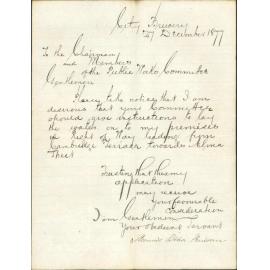 City Brewery
27 December 1877
To the Chairman
and Members
of the Public Works Committee
Gentlemen
Please take notice that I am
desirous that your Committee
should give instructions to lay
the water on to my premises
in Right of Way leading from
Cambridge Terrace towards Alma
Street
Trusting that this my
application
may receive
your favourable
consideration
I am Gentlemen
Your Obedient Servant